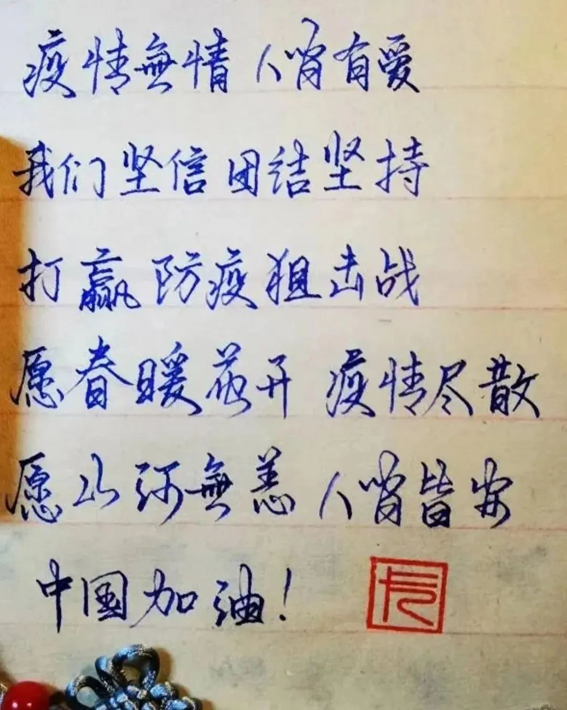 疫情無情 人間有爱
我们坚信团结坚持
打赢防疫狙击战
愿春暖花开 疫情尽散
愿山河無恙 人間皆安
中国加油！